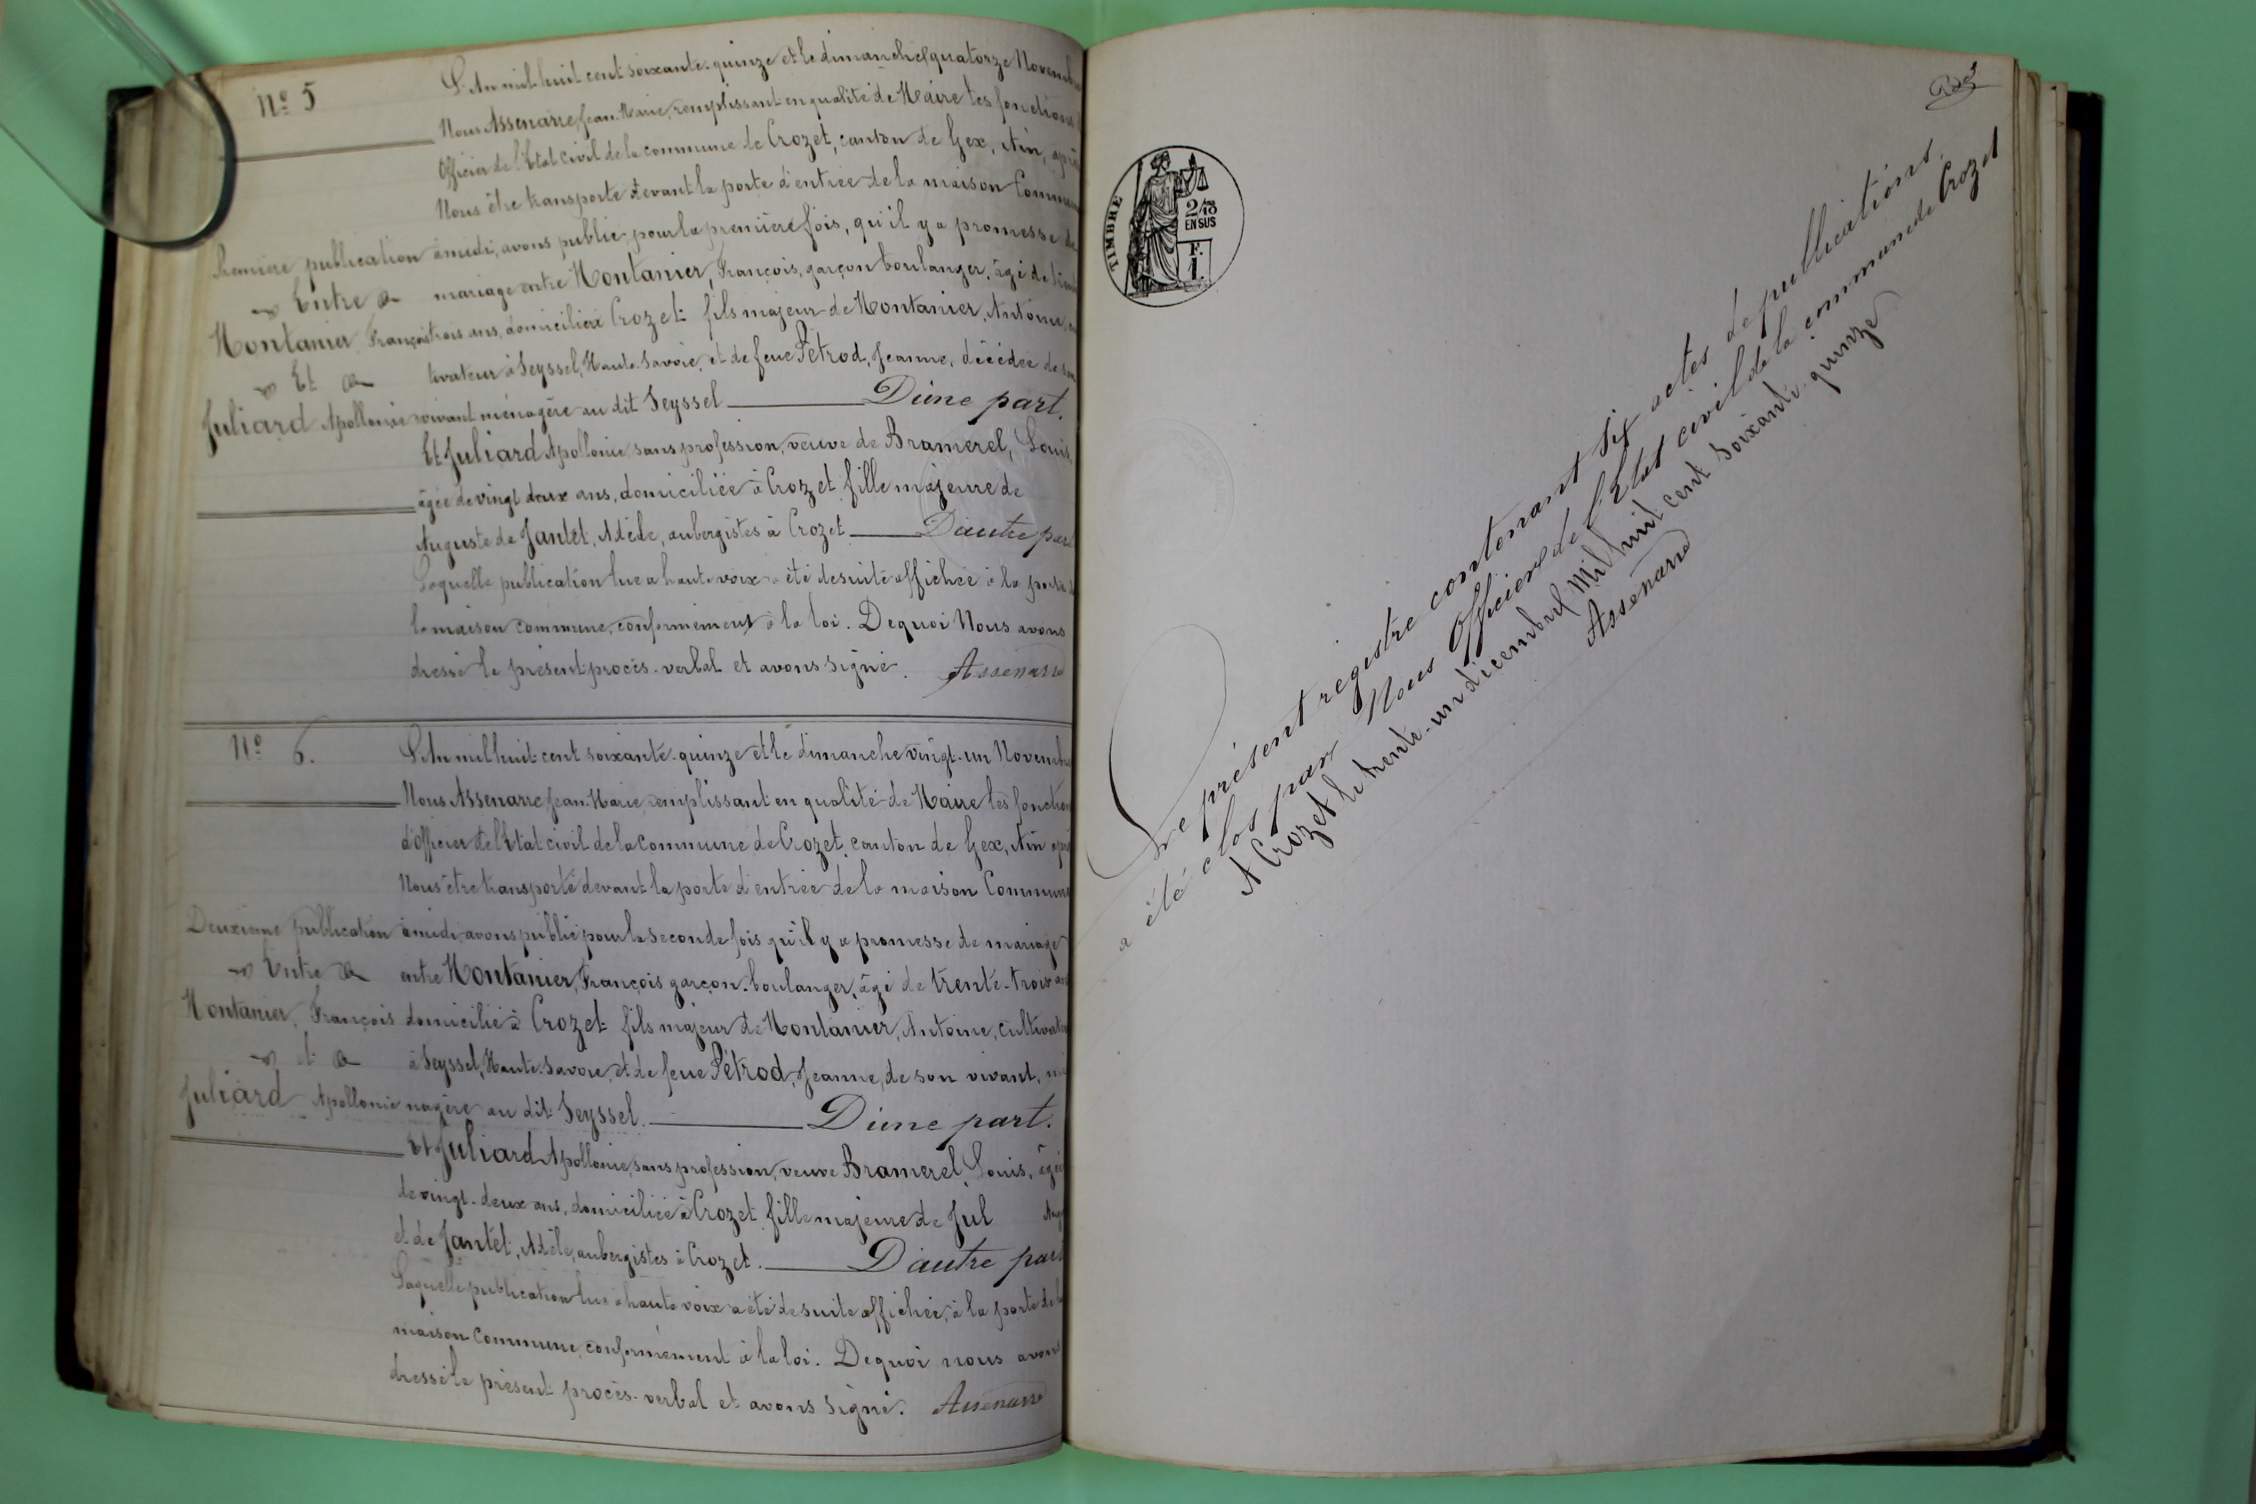 Nº 5
L'An mil huit cent soixante-quinze et le dimanche quatorze Novembre
Nous Assenarre, Jean-Marie, remplissant en qualité de Maire les fonctions
Officier de l'Etat civil de la commune de Crozet, canton de Gex, Ain, après
Nous être transporté devant la porte d'entrée de la maison Commune
Première publication
à midi, avons publié pour la première fois, qu'il y a promesse de
Entre
mariage entre Montanier, François, garçon boulanger, âgé de
Montanier, François
trois ans, domicilié à Crozet fils majeur de Montanier, Antoine,
Et
tivateur à Seyssel, Haute-Savoie, et de feue Pétrod, Jeanne, décédée de son
Juliard Apollonie
vivant ménagère au dit Seyssel D'une part.
Et Juliard Apollonie sans profession, veuve de Bramerel, Louis,
âgée de vingt deux ans, domiciliée à Crozet fille majeure de
Auguste de Jantet, Adèle, aubergistes à Crozet D'autre part
Laquelle publication lue à haute voix a été de suite affichée à la porte
la maison commune, conformément à la loi. De quoi Nous avons
dressé le présent procès-verbal et avons signé. Assenarre
Nº 6.
L'An mil huit cent soixante-quinze et le dimanche vingt-un Novembre
Nous Assenarre Jean-Marie, remplissant en qualité de Maire les fonctions
d'Officier de l'Etat civil de la Commune de Crozet, canton de Gex, Ain
Nous être transporté devant la porte d'entrée de la maison Commune
Deuxième publication
à midi, avons publié pour la seconde fois qu'il y a promesse de mariage
Entre
entre Montanier, François garçon-boulanger, âgé de trente-trois ans
Montanier, François
domicilié à Crozet fils majeur de Montanier, Antoine, cultivateur
et
à Seyssel, Haute-Savoie, et de feue Pétrod, Jeanne, de son vivant, mé
Juliard Apollonie
nagère au dit Seyssel. D'une part.
Et Juliard Apollonie, sans profession, veuve Bramerel, Louis, âgée
de vingt-deux ans, domiciliée à Crozet, fille majeure de Jul
et de Jantet, Adèle, aubergistes à Crozet. D'autre part
Laquelle publication lue à haute voix a été de suite affichée, à la porte de la
maison Commune, conformément à la loi. De quoi nous avons
dressé le présent procès-verbal et avons signé. Assenarre
TIMBRE
2/10
EN SUS
F.
1.
Le présent registre contenant six actes de publications
a été clos par Nous Officier de l'Etat civil de la commune de Crozet
A Crozet le trente-un décembre mil huit cent soixante-quinze
Assenarre